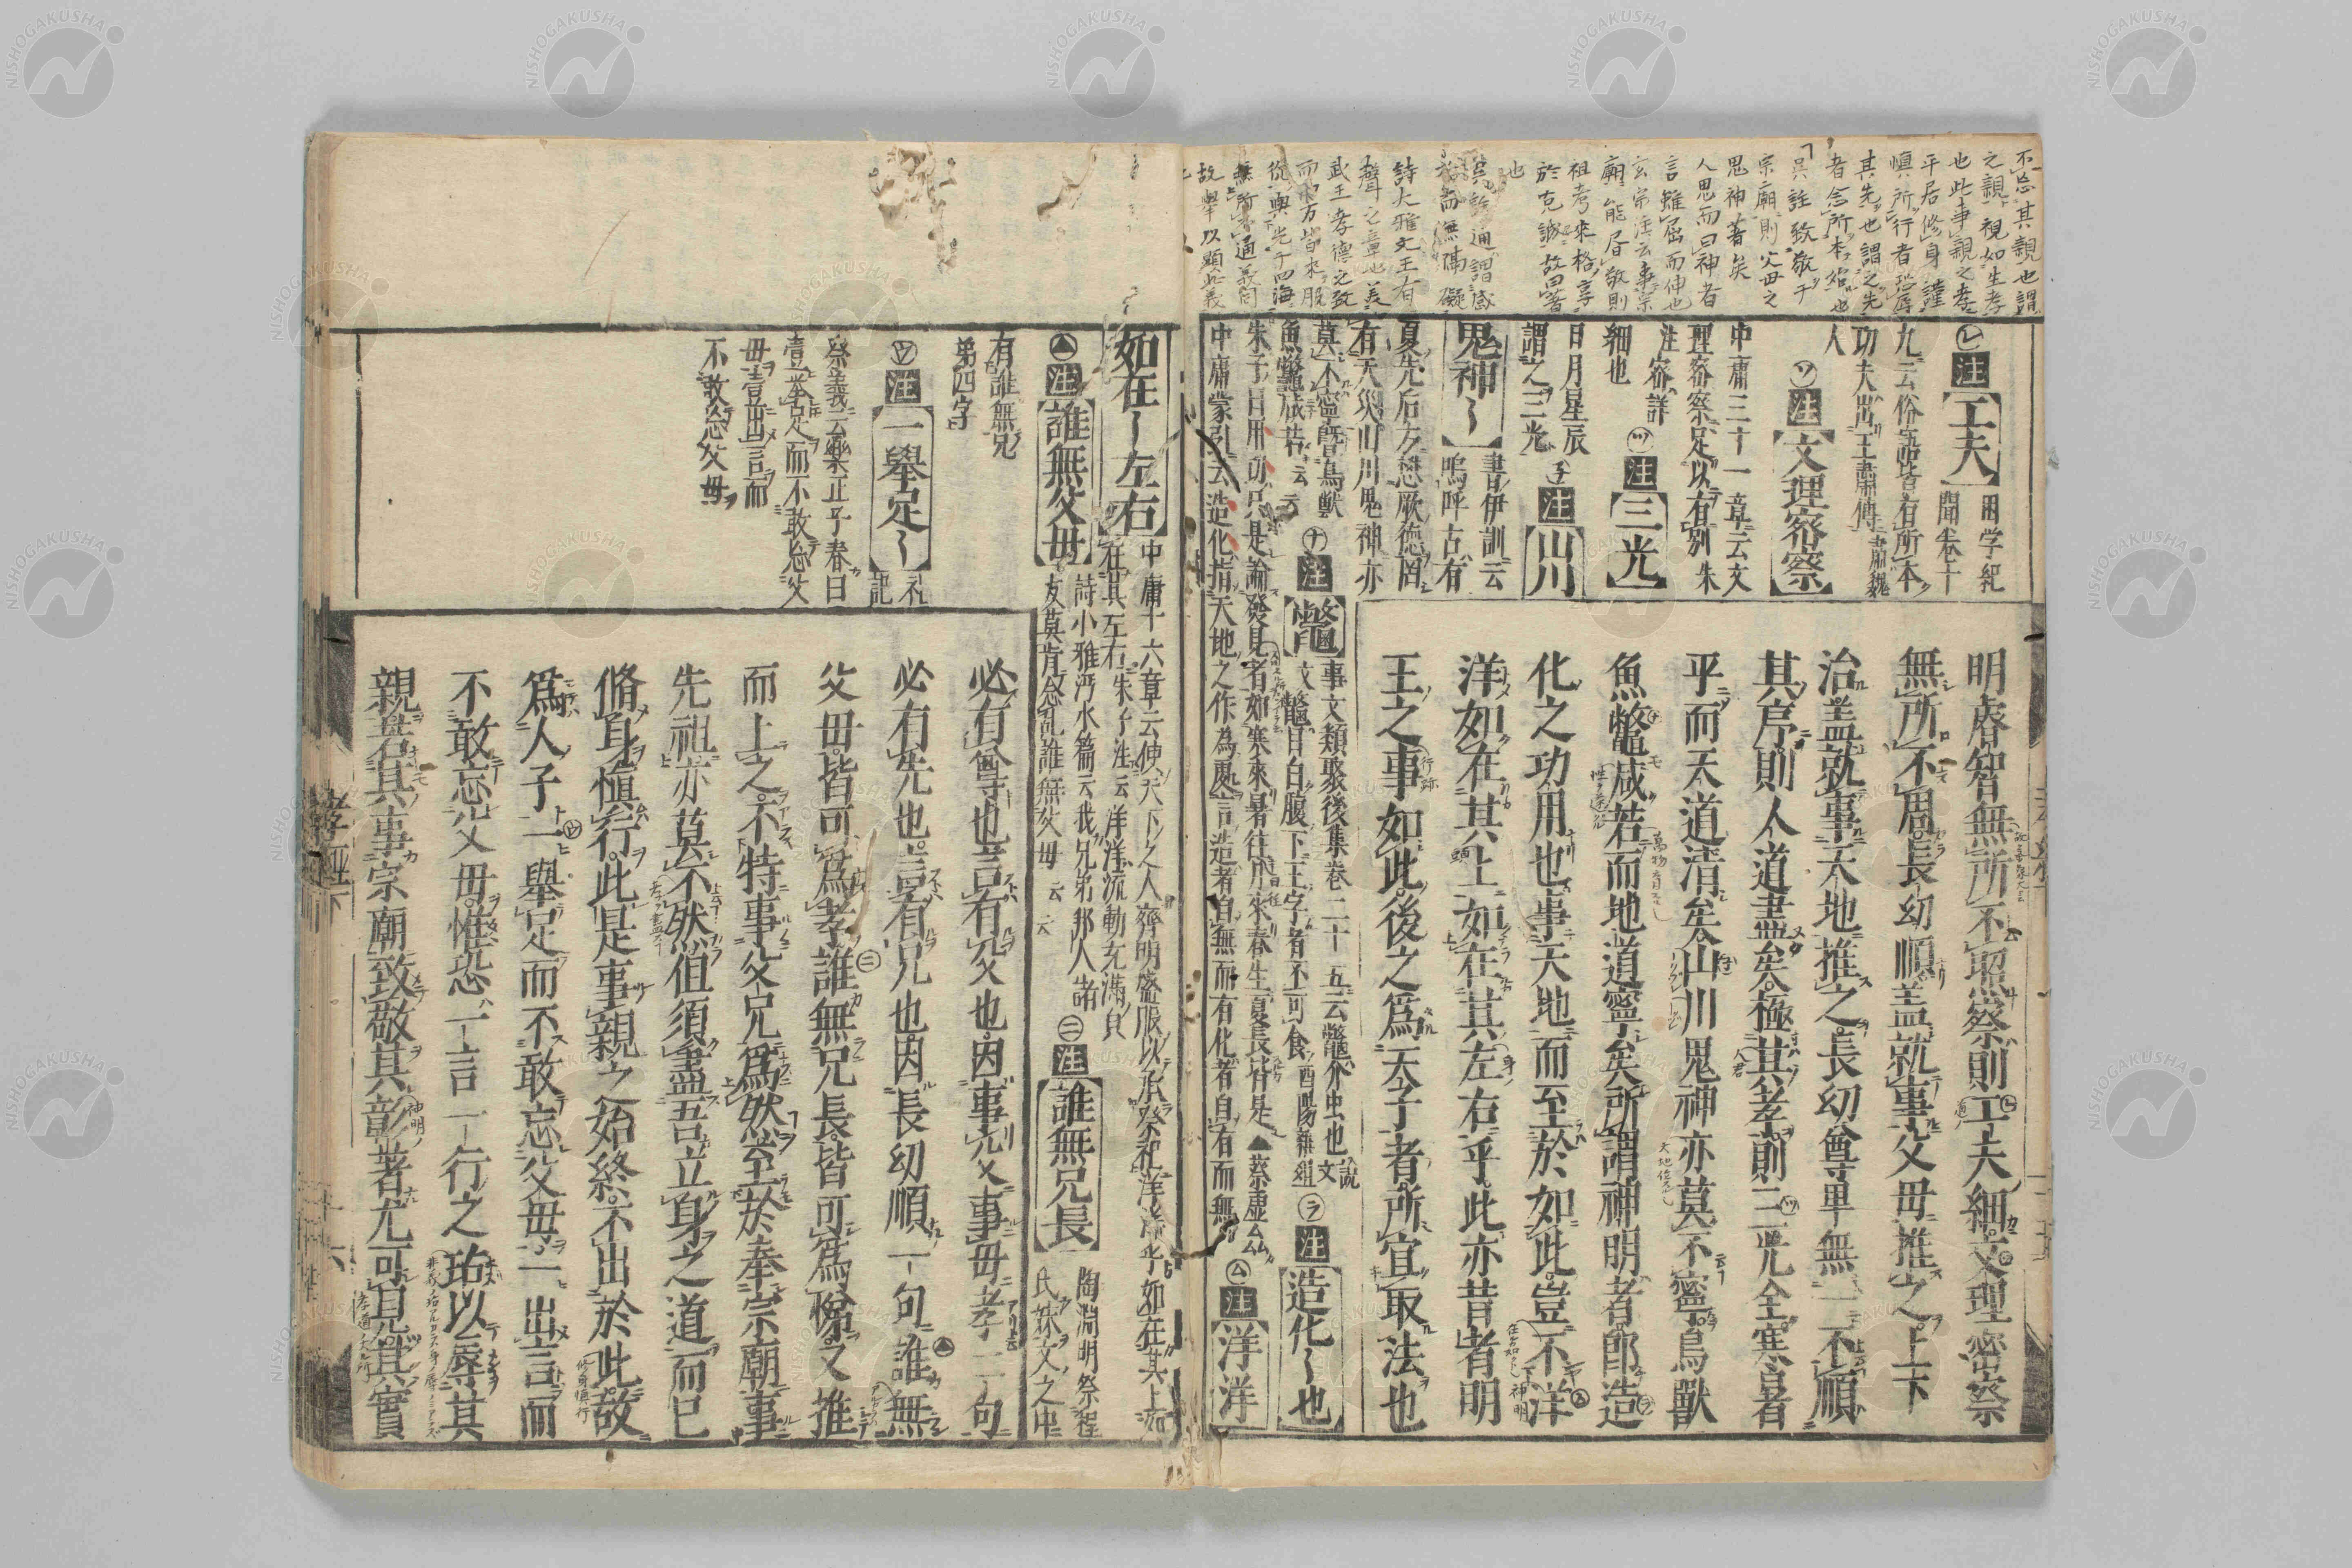 不忘其親也謂
之親視如生孝
也此事親之孝
平居修身謹
愼所行者恐辱
其先也謂之先
者念所本始也
吳註致敬于
宗廟則父母之
思神著矣
人思而曰神者
言雖屈而伸也
玄宗注云事宗
廟能尽敬則
祖考來格享
於克誠故曰著
也
吳註通謂感
格而無隔礙
詩大雅文王有
聲之章也美
武王孝德之致
而四方皆來服
從與光于四海
無所不通義同
故舉以顯此義
㋹注工夫 困学紀
聞卷十
九云俗語皆有所本
功夫出王肅傳 肅魏
人
㋞注文理密察
中庸三十一章云文
理密察足以有別朱
注密詳
細也 ㋡注三光
日月星辰
謂之三光 注山川
鬼神〜 書伊訓云
嗚呼古有
夏先后方懋厥德罔
有天災山川鬼神亦
莫不寧曁鳥獸
魚鼈咸若云云 ㋤注鼈 事文類聚後集卷二十五云鼈介虫也 說
文 鼈目白腹下王字者不可食 酉陽雜俎 ㋶注造化〜也
朱子曰用功只是論發見者如寒來暑往日往月來春生夏長皆是▲蔡虛公
中庸蒙引云造化指天地之作為處言造者自無而有化者自有而無 ㋰注洋洋
明睿智無所不照察則工夫細文理密察
無所不周長幼順盖就事父母推之上下
治盖就事天地推之長幼尊卑無一不順
其序則人道盡矣極其孝則三光全寒暑
平而天道清矣山川鬼神亦莫不寧鳥獸
魚鼈咸若而地道寧矣所謂神明者卽造
化之功用也事天地而至於如此豈不洋
洋如在其上如在其左右乎此亦昔者明
王之事如此後之爲天子者所宜取法也
如在〜左右 中庸十六章云使天下之人齊明盛服以承祭祀洋洋乎如在其上如
在其左右朱子注云洋洋流動充滿㒵
▲注誰無父母 詩小雅沔水篇云我兄弟邦人諸
友莫肯念乱誰無父母云云 ㊁注誰無兄長 陶淵明祭程
氏妹文之中
有誰無兄
弟四字
注一擧足〜 礼
記
祭義云樂正子春曰
壹擧足而不敢忘父
母壹出言而
不敢忘父母
必有尊也言有父也因事父事母孝二句
必有先也言有兄也因長幼順一句誰無
父母皆可爲孝誰無兄長皆可爲悌又推
而上之不特事父兄爲然至於奉宗廟事
先祖亦莫不然但須盡吾立身之道而已
脩身愼行此是事親之始終不出於此故
爲人子一擧足而不敢忘父母一出言而
不敢忘父母惟恐一言一行之玷以辱其
親若其事宗廟致敬其彰著尤可見其實
孝經下
六
NISHOGAKUSHA